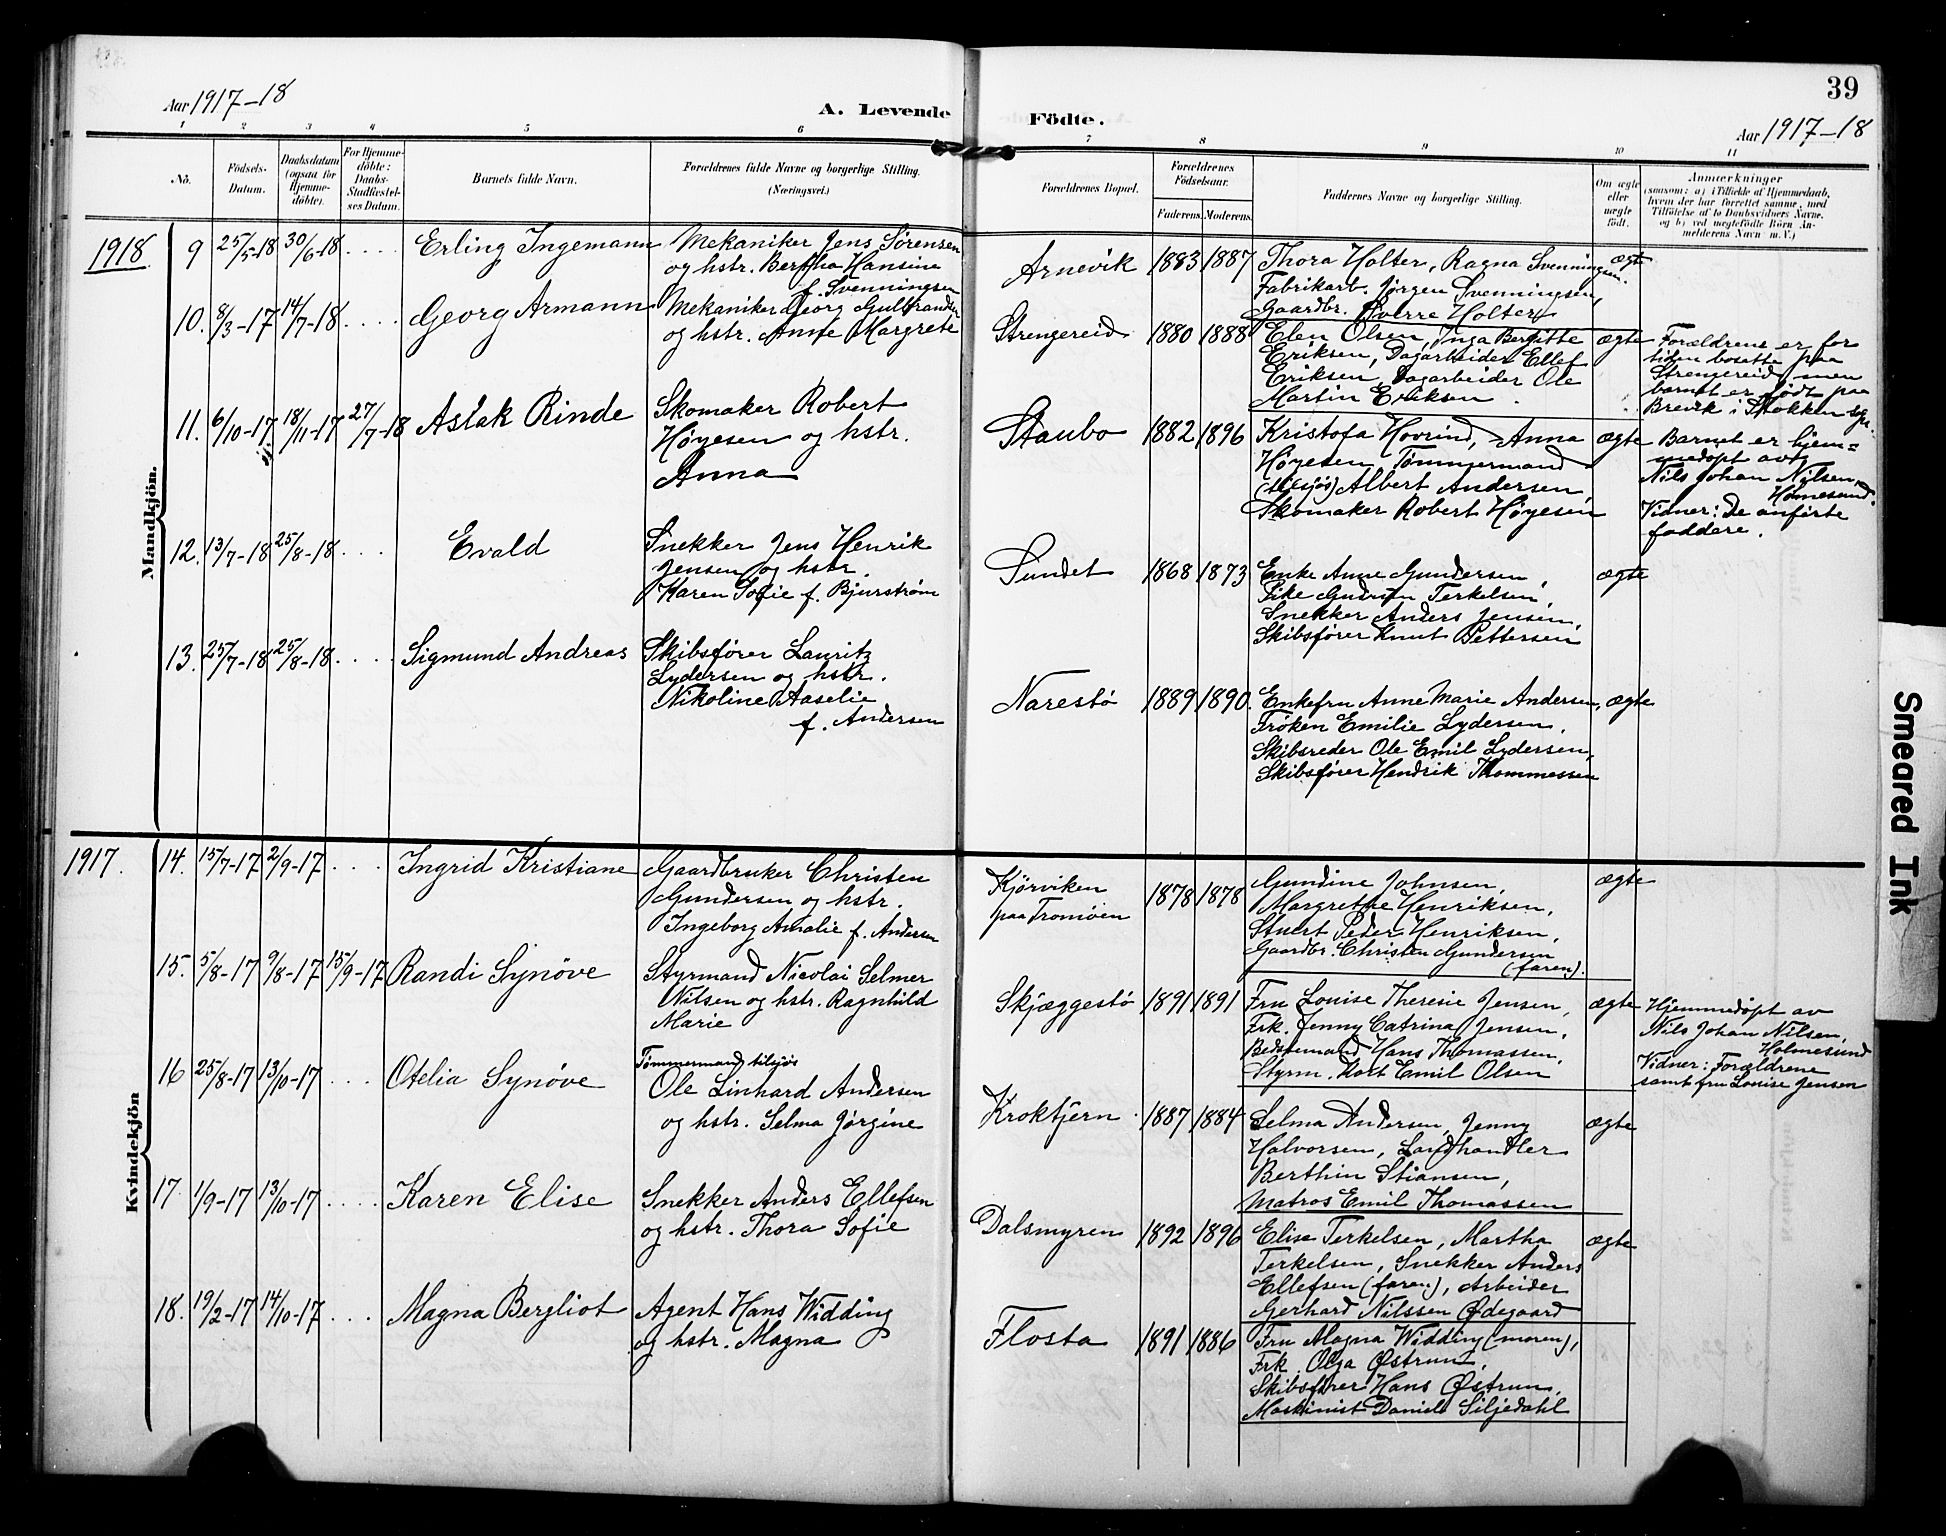 39
Aar 1917-18
A. Levende Födte.
Aar 1917-18
1 2 3 4 5 6 7 8 9 10 11
No.
Födsels-
Datum.
Daabsdatum
(ogsaa for
Hjemme-
döbte).
For Hjemme-
döbte:
Daabs-
Stadfæstel-
ses Datum.
Barnets fulde Navn.
Forældrenes fulde Navne og borgerlige Stilling.
(Næringsvei.)
Forældrenes Bopæl.
Forældrenes
Födselsaar.
Faderens. Moderens.
Faddernes Navne og borgerlige Stilling.
Om ægte
eller
uægte
födt.
Anmærkninger
(saasom: a) i Tilfælde af Hjemmedaab,
hvem der har forrettet samme, med
Tilföielse af to Daabsvidners Navne.
og b) ved uægtefödte Börn An-
melderens Navn m. V.)
Mandkjön.
1918
9 25/5-18 30/6-18 . . . .
Erling Ingemann
Mekaniker Jens Sørensen
og hstr. Bertha Hansine
f. Svenningsen
Arnevik 1883 1887
Thora Holter, Ragna Svenningsen.
Fabrikarb. Jørgen Svenningsen,
Gaardbr. Sverre Holter
ægte
10. 8/3-17 14/7-18 . . . .
Georg Armann
Mekaniker Georg Gulbrandsen
og hstr. Anne Margrete
Strengereid 1880 1888
Elen Olsen, Inga Bergitte
Eriksen, Dagarbeider Ellef
Eriksen, Dagarbeider Ole
Martin Eriksen.
ægte
Forældrene er for
tiden bosatte paa
Strengereid, men
barnet er født paa
Brevik i Stokken sgn.
11. 6/10-17 18/11-17 27/7-18
Aslak Rinde
Skomaker Robert
Høyesen og hstr.
Anna
Staubo 1882 1896
Kristofa Hovrind, Anna
Høyesen Tømmermand
(tilsjøs) Albert Andersen,
Skomaker Robert Høyesen
ægte
Barnet er hjem=
medøpt av
Nils Johan Nilsen,
Holmesund.
Vidner: De anførte
faddere.
12. 13/7-18 25/8-18 . . . .
Evald
Snekker Jens Henrik
Jensen og hstr.
Karen Sofie f. Bjurstrøm
Sundet 1868 1873
Enke Anne Gundersen,
Pike Gudrun Terkelsen,
Snekker Anders Jensen,
Skibsfører Knut Pettersen
ægte
13. 25/7-18 25/8-18 . . . .
Sigmund Andreas
Skibsfører Lauritz
Lydersen og hstr.
Nikoline Aaselie
f. Andersen
Narestø 1889 1890.
Enkefru Anne Marie Andersen,
Frøken Emilie Lydersen.
Skibsreder Ole Emil Lydersen,
Skibsfører Hendrik Thommessen
ægte
Kvindekjön
1917.
14. 15/7-17 2/9-17 . . . .
Ingrid Kristiane
Gaardbruker Christen
Gundersen og hstr.
Ingeborg Amalie f. Andersen
Kjørviken
paa Tromøen
1878 1878
Gundine Johnsen,
Margrethe Henriksen,
Stuert Peder Henriksen,
Gaardbr. Christen Gundersen
(faren).
ægte
15. 5/8-17 9/8-17 15/9-17
Randi Synøve
Styrmand Nicolai Selmer
Nilsen og hstr. Ragnhild
Marie
Skjæggestø 1891 1891
Fru Louise Theresie Jensen,
Frk. Jenny Catrina Jensen,
Bedstemand Hans Thomassen,
Styrm. Emil Olsen
ægte
Hjemmedøpt av
Nils Johan Nilsen,
Holmesund
Vidner: Forældrene
samt fru Louise Jensen
16 25/8-17 13/10-17 . . . .
Otelia Synøve
Tømmermand tilsjøs
Ole Linhard Andersen
og hstr. Selma Jørgine
Kroktjern 1887 1884
Selma Andersen, Jenny
Halvorsen, Landhandler
Berthin Stiansen,
Matros Emil Thomassen
ægte
17. 1/9-17 13/10-17 . . . .
Karen Elise
Snekker Anders Ellefsen
og hstr. Thora Sofie
Dalsmyren 1892 1896
Elise Terkelsen, Martha
Terkelsen, Snekker Anders
Ellefsen (faren), Arbeider
Gerhard Nilssen Ødegaard
ægte
18. 19/2-17 14/10-17 . . . .
Magna Bergliot
Agent Hans Widding
og hstr. Magna
Flosta 1891 1886
Fru Magna Widding (moren),
Frk. Olga Østrum,
Skibsfører Hans Østrum,
Maskinist Daniel Siljedahl
Smeared Ink